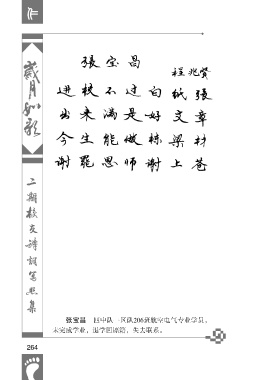 作
歲月如歌
二期校友诗词笔墨集
張宝昌
程兆賢
进校不过白纸張
出来满是好文章
今生能做栋梁材
谢罷恩师谢上苍
张宝昌 四中队一区队206班航空电气专业学员，
未完成学业，退学回原籍，失去联系。
264